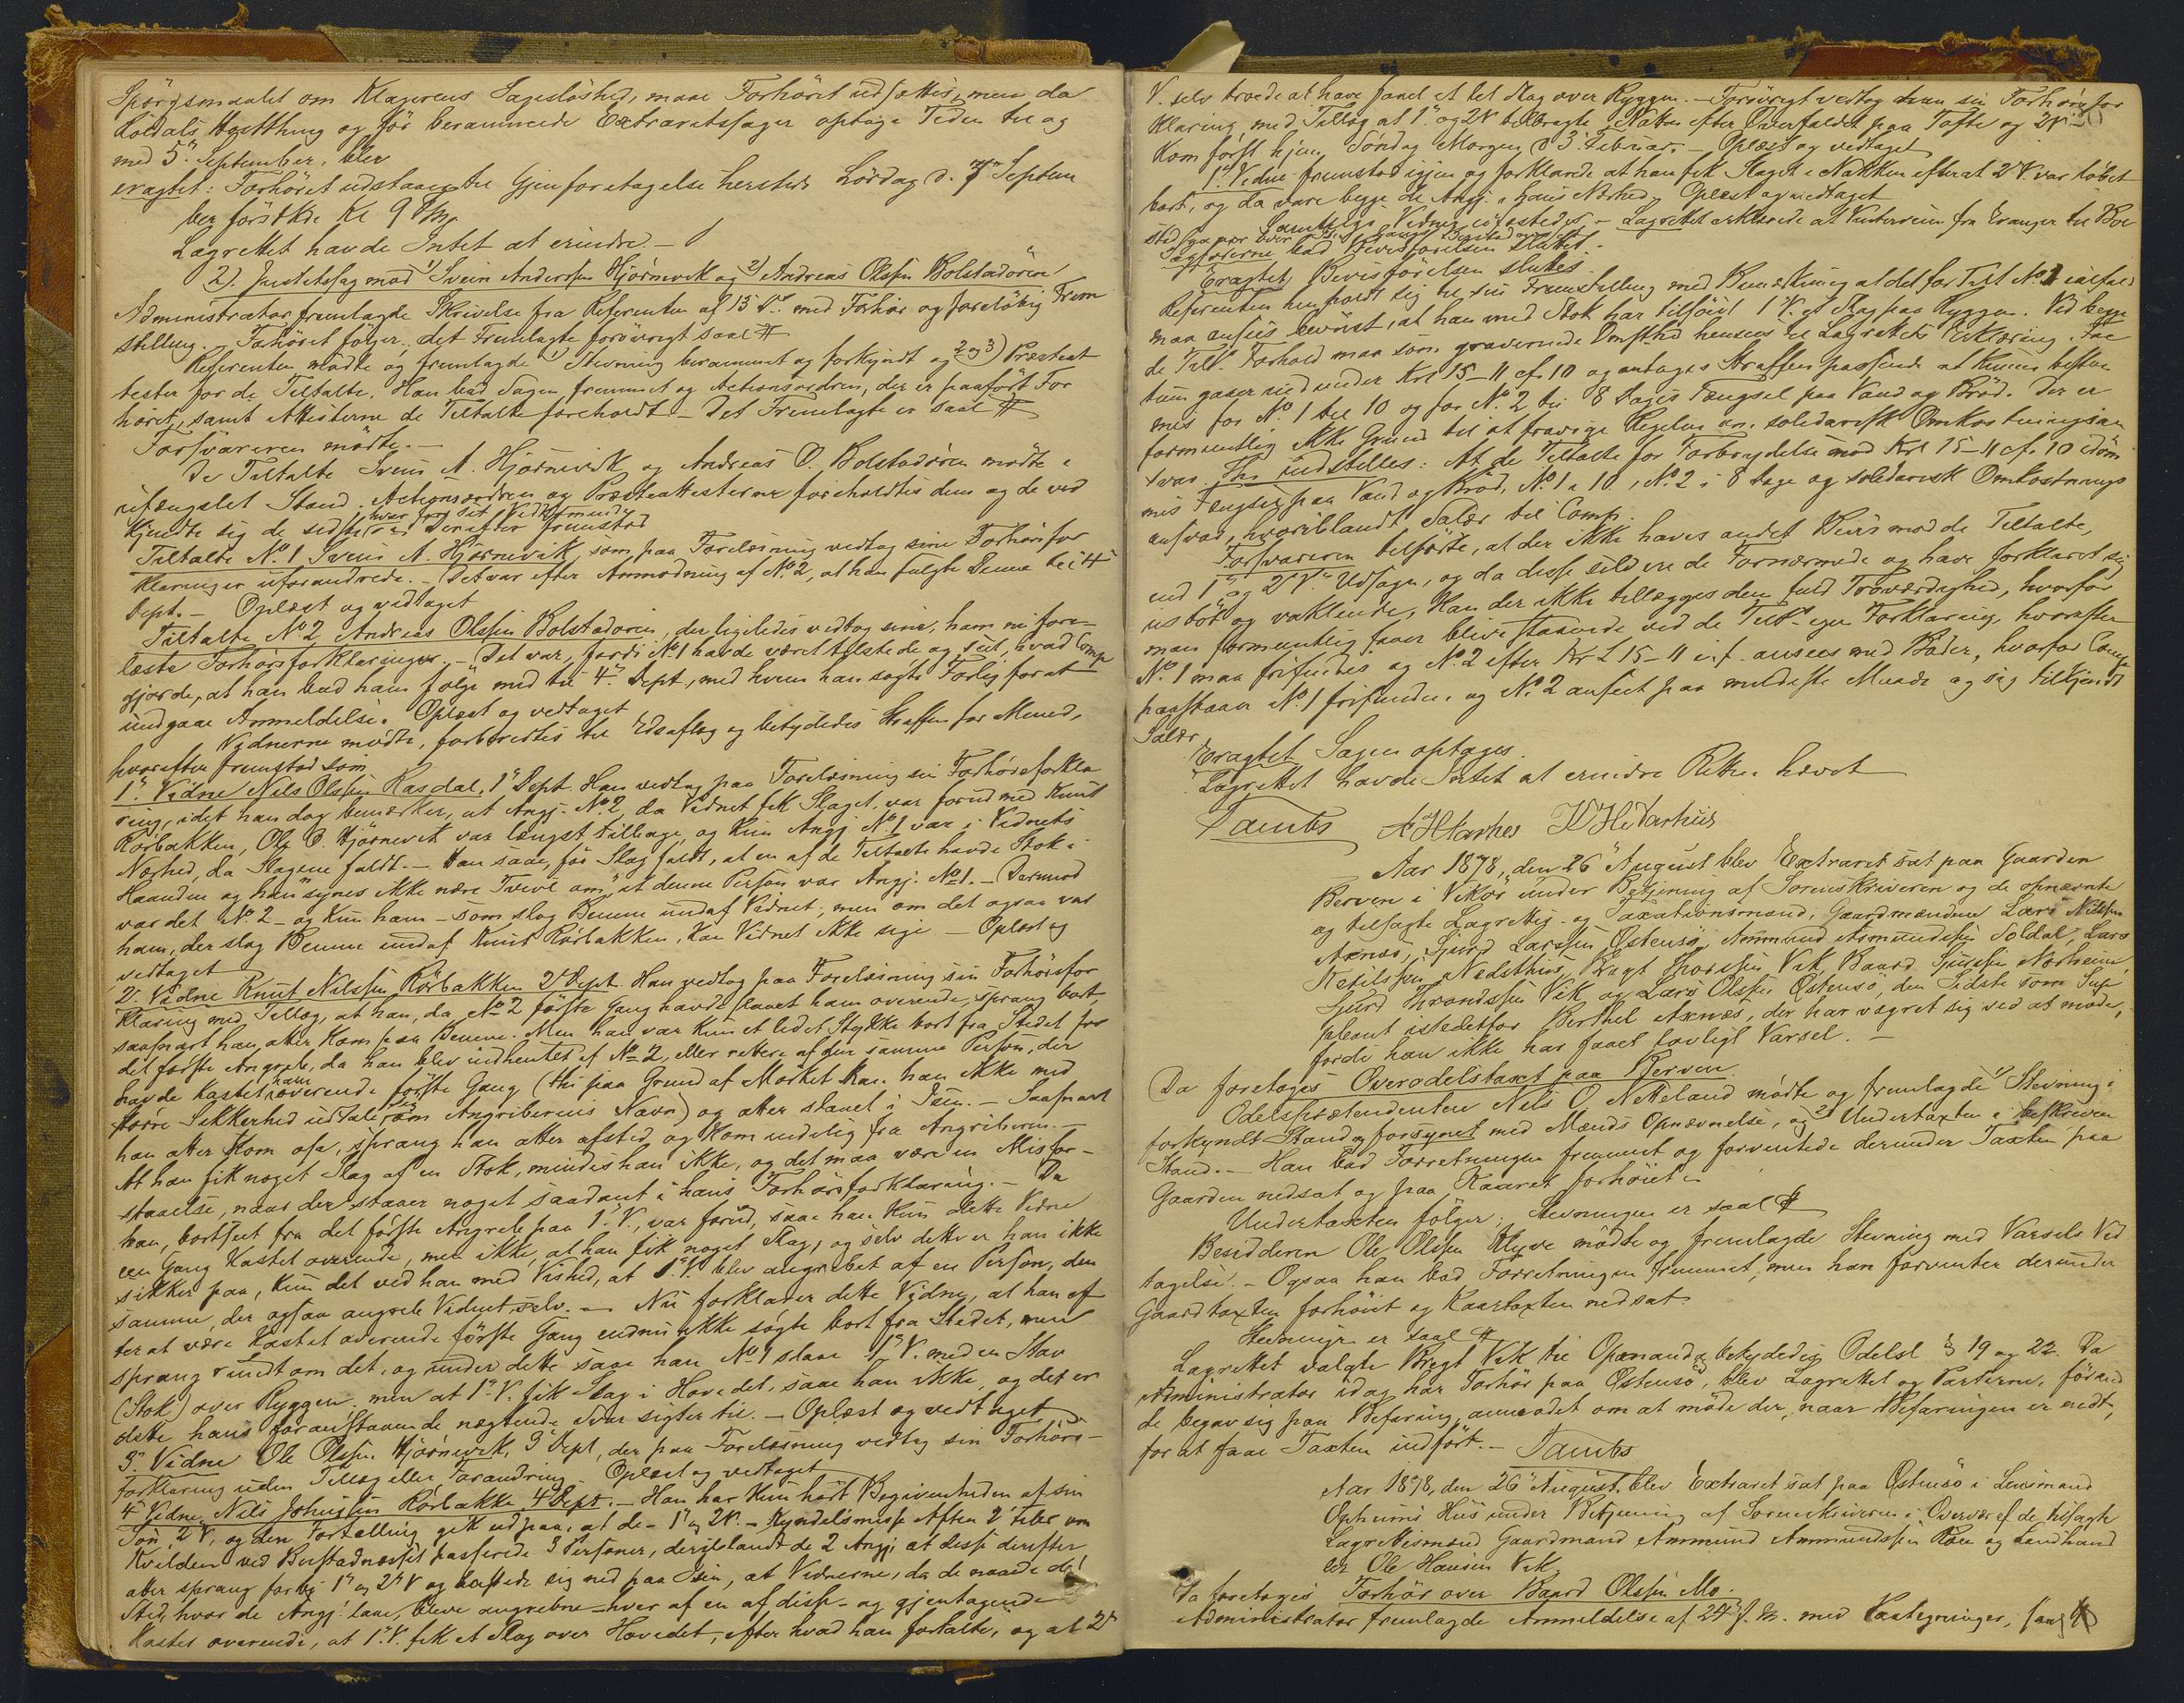 Spörgsmaalet om Klagerens Sagesløshed, maae Forhöret udsættes, men da
Höstthing og för berammede Extraretssager optage Tiden til og
med 5te September, blev
eragtet: Forhöret udstaaer til Gjenforetagelse hersteds Lördag d. 7de Septem
ber förstk. Kl 9 Fm.
Lagrettet havde Intet at erindre. –
2). Justitssag mod 1) Svein Anderssen Hjörnevik og 2) Andreas Olssen Bolstadören
Administrator fremlagde Skrivelse fra Referenten af 13 d.M. med Forhör og foreløbig Frem
stilling. – Forhöret følger, det Fremlagte forövrigt saal.
Referenten mödte og fremlagde 1) Stevning berammet og forkyndt og 2 og 3) Præsteat
tester for de Tiltalte. Han bad Sagen fremmet og Actionsordren, der er paaført For
höret, samt Attesterne de Tiltalte foreholdt – Det Fremlagte er saal.
Forsvareren mödte. –
De Tiltalte Svein A. Hjörnevik og Andreas O. Bolstadören mødte i
ufængslet Stand. Actionsordren og Præsteattesterne foreholdtes dem og de ved
kjendte sig de sidste hver for sit Vedkommende. Derefter fremstod
Tiltalte No 1 Svein A. Hjørnevik, som paa Forelæsning vedtog sine Forhörsfor
klaringer uforandrede. – Det var efter Anmodning af No 2, at han fulgte Denne til 4
Dept. – Oplæst og vedtaget
Tiltalte No 2 Andreas Olssen Bolstadören, der ligeledes vedtog sine, ham nu fore-
læste Forhörsforklaringer. – Det var, fordi No 1 havde været tilstede og seet, hvad Comp
gjorde, at han bad ham følge med til 4de Dept, med hvem han søgte Forlig for at
undgaae Anmeldelse. Oplæst og vedtaget
Vidnerne mødte, forberedtes til Edsaflæg og betydedes Straffen for Mened,
hvorefter fremstod som
1ste Vidne Nils Olssen Rasdal, 1ste Dept. Han vedtog paa Forelæsning sin Forhörsforkla
ring, idet han dog bemærker, at Angj. No 2, da Vidnet fik Slaget, var forud med Knut
Rørbakken, Ole O. Hjörnevik var længst tilbage, og kun Angj No 1 var i Vidnets
Nærhed, da Slagene faldt. – Han saae, før Slag faldt, at en af de Tiltalte havde Stok i
Haanden og han "synes ikke nære Tvivl om", at denne Person var Angj. No 1. – Derimod
var det No 2 – og kun ham – som slog Benene undaf Vidnet; men om det ogsaa var
ham, der slog Benene undaf Knut Rörbakken, kan Vidnet ikke sige – Oplæst og
vedtaget
2de Vidne Knut Nilssen Rörbakken 2de Dept. Han vedtog paa Forelæsning sin Forhörsfor
klaring med Tillæg, at han, da No 2 første Gang havde slaaet ham overende, sprang bort
saasnart han atter kom paa Benene. Men han var kun et lidet Stykke bort fra Stedet for
det første Angreb, da han blev indhentet af No 2, eller rettere af den samme Person, der
havde kastet ham overende første Gang (thi paa Grund af Mørket kan han ikke med
større Sikkerhed udtale sig om Angriberens Navn) og atter slaaet i Isen. – Saasnart
han atter kom op, sprang han atter afsted og kom endelig fra Angriberen. –
At han fik noget Slag af en Stok, mindes han ikke, og det maa være en Misfor-
staaelse, naar der staaer noget saadant i hans Forhørsforklaring. – Da
han, bortseet fra det første Angreb paa 1ste V., var forud, saae han kun dette Vidne
een Gang kastet overende, men ikke, at han fik noget Slag, og selv dette er han ikke
sikker paa, kun det ved han med Vished, at 1ste V. blev angrebet af en Person, den
samme, der ogsaa angreb Vidnet selv. – Nu forklarer dette Vidne, at han ef
ter at være kastet overende første Gang endnu ikke søgte bort fra Stedet, men
sprang rundt om det, og under dette saae han No 1 slaae 1ste V. med en Stav
(Stok) over Ryggen, men at 1ste V. fik Slag i Hovedet, saae han ikke, og det er
dette hans foranstaaende nægtende Svar sigter til. – Oplæst og vedtaget
3de Vidne Ole Olssen Hjörnevik, 3de Dept, der paa Forelæsning vedtog sin Forhörs-
forklaring uden Tillæg eller Forandring. Oplæst og vedtaget
4de Vidne Nils Johnssen Rörbakke 4de Dept. – Han har kun hørt Begivenheden af sin
Søn, 2det V, og den Fortælling gik ud paa, at de – 1ste og 2det V. – Kyndelsmesse Aften 2 Febr om
Kvelden ved Bolstadnæsset passerede 3 Personer, deriblandt de 2 Angj; at disse derefter
atter sprang forbi 1ste og 2det V og kastede sig ned paa Isen, at Vidnerne, da de naaede det
Sted, hvor de Angj. laae, bleve angrebne – hver af en af disse – og gjentagende
kastet overende, at 1ste V. fik et Slag over Hovedet, efter hvad han fortalte, og at 2det
V. selv troede at have faaet et let Slag over Ryggen. – Forövrigt vedtog han sin Forhörsfor
klaring med Tillæg at 1ste og 2det V tilbragte Natten efter Overfaldet paa Tofte og 2det V
kom först hjem Søndag Morgen d 3die Februar. – Oplæst og vedtaget
1ste Vidne fremstod igjen og forklarede at han fik Slaget i Nakken efterat 2det V. var løbet
bort, og da vare begge de Angj. i hans Nærhed. Oplæst og vedtaget
Samtlige Vidner edfæstedes. – Lagrettet erklærede at Vinterveien fra Evanger til Bol
stad gaaer over
Sagførerne bad Bevisførelsen sluttet.
Eragtet Bevisførelsen sluttes.
Referenten henholdt sig til sin Fremstilling med Bemærkning at det for Tilt No 1 ialfald
maa ansees bevist, at han med Stok har tilføiet 1ste V. et Slag paa Ryggen. Ved begge
de Tilt. Forhold maa som graverende Omsthd henses til Lagrettets Erklæring. Fac
tum gaaer ind under Krl 15–11 cfr. 10 og antages Straffen passende at kunne bestem
mes for No 1 til 10 og for No. 2 til 8 Dages Fængsel paa Vand og Bröd. Der er
formentlig ikke Grund til at fravige Regelen om solidarisk Omkostningsan
svar. Thi indstilles: At de Tiltalte for Forbrydelse mod Krl 15–11 cfr. 10 idøm
mes Fængsel paa Vand og Bröd, No. 1 i 10, No. 2 i 8 Dage og solidarisk Omkostnings
ansvar, hvoriblandt Salær til Comp.
Forsvareren tilførte, at der ikke haves andet Bevis mod de Tiltalte,
end 1ste og 2det V.s Udsagn, og da disse selv ere de Fornærmede og have forklaret sig
ustöt og vaklende, kan der ikke tillægges dem fuld Troværdighed, hvorfor
man formentlig faaer blive staaende ved de Tilt.s egen Forklaring, hvorefter
No. 1 maa frifindes og No. 2 efter Kr L 15–11 i.f. ansees med Bøder, hvorfor Comp
paastaaer No. 1 frifunden og No. 2 anseet paa mildeste Maade og sig tilkjendt
Salær
Eragtet Sagen optages.
Lagrettet havde Intet at erindre Retten hævet
Tambs
Aar 1878, den 26 August blev Extraret sat paa Gaarden
Berven i Vikör under Betjening af Sorenskriveren og de opnævnte
og tilsagte Lagrettes- og Taxationsmænd, Gaardmændene Lars Nilssen
Axnæs, Sjurd Larssen Østensø, Ammund Asmundssen Soldal, Lars
Ketilssen Nedsthus, Brægt Thorssen Vik, Baard Sjurssen Norheim
Sjurd Throndssen Vik og Lars Olssen Østensø, den Sidste som Sup
pleant istedetfor Berthel Axnæs, der har vægret sig ved at møde,
fordi han ikke har faaet lovligt Varsel. –
Da foretages Overodelstaxt paa Berven.
Odelsprætendenten Nils O. Netteland mödte og fremlagde 1) Stevning i
forkyndt Stand og forsynet med Mænds Opnævnelse, og 2) Undertaxten i beskreven
Stand. – Han bad Forretningen fremmet og forventede derunder Taxten paa
Gaarden nedsat og paa Kaaret forhöiet. –
Undertaxten følger; Stevningen er saal.
Besidderen Ole Olssen Klyve mödte og fremlagde Stevning med Varsels Ved
tagelse. – Ogsaa han bad Forretningen fremmet, men han forventer derunder
Gaardtaxten forhöiet og Kaartaxten nedsat.
Stevningen er saal.
Lagrettet valgte Brægt Vik til Opmand og betydedes Odelsl § 19 og 22. Da
Administrator idag har Forhör paa Östensö, blev Lagrettet og Parterne, förend
de begav sig paa Befaring, anmodet om at møde der, naar Befaringen er endt,
for at faae Taxten indført. – Tambs
Aar 1878, den 26 August, blev Extraret sat paa Østensö i Lensmand
Opheims Hus under Betjening af Sorenskriveren i Overvær af de tilsagte
Lagrettesmænd Gaardmand Ammund Ammundssen Röe og Landhand
ler Ole Hansen Vik
Da foretages Forhör over Baard Olssen Mo.
Administrator fremlagde Anmeldelse af 24 f. M. med Paategninger, saal.